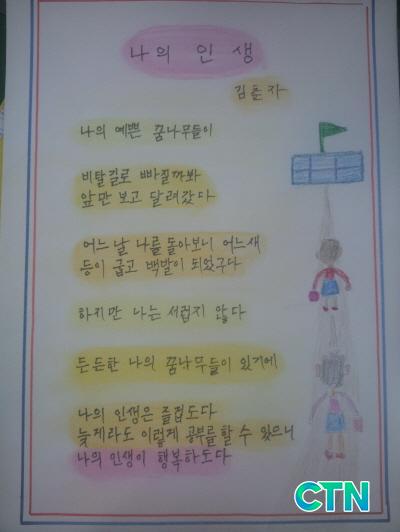 나의 인생
김춘자
나의 예쁜 꿈나무들이
비탈길로 빠질까봐
앞만 보고 달려갔다
어느날 나를 돌아보니 어느새
등이 굽고 백발이 되었구다
하지만 나는 서럽지 않다
든든한 나의 꿈나무들이 있기에
나의 인생은 즐겁도다
늦게라도 이렇게 공부를 할 수 있으니
나의 인생이 행복하도다
CTN